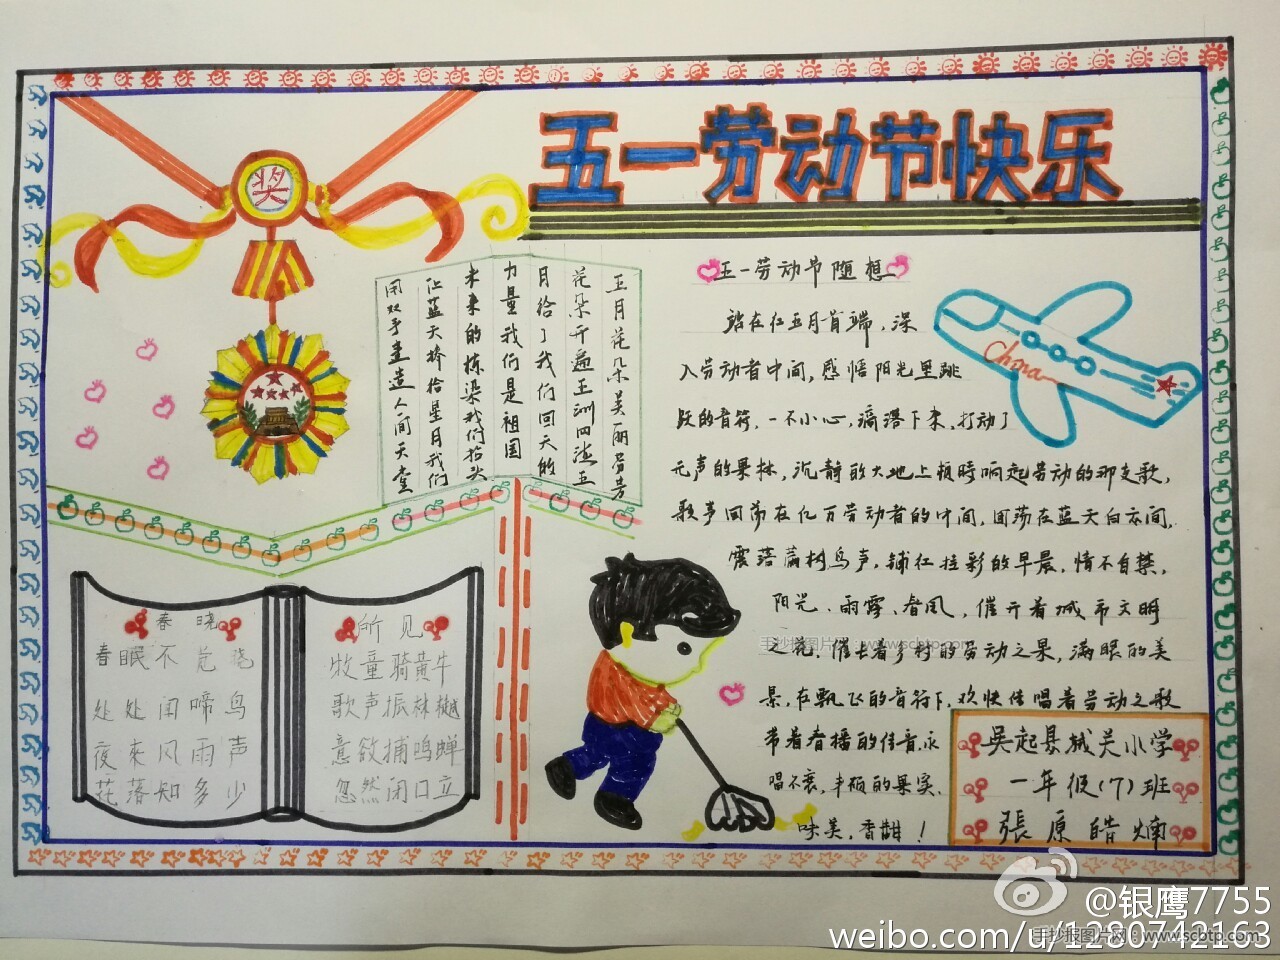 五一劳动节快乐
奖
五月花朵美丽芳芳
花朵开遍五洲四海五
月给了我们回天的
力量我们是祖国
未来的栋梁我们抬头
让蓝天捧给星月我们
用双手建造人间天堂
五一劳动节随想
站在红五月首端,深
入劳动者中间,感悟阳光里跳
跃的音符,一不小心,滴落下来,打动了
无声的果林,沉静的大地上顿时响起劳动的那支歌,
歌声回荡在亿万劳动者的中间,回荡在蓝天白云间,
震落满树鸟声,铺红挂彩的早晨,情不自禁,
阳光、雨露、春风,催开着城市文明
之花,催长着乡村的劳动之果,满眼的美
景,在飘飞的音符下,欢快传唱着劳动之歌
带着春播的佳音,永
唱不衰,丰硕的果实,
味美,香甜!
China
春晓
春眠不觉晓
处处闻啼鸟
夜来风雨声
花落知多少
所见
牧童骑黄牛
歌声振林樾
意欲捕鸣蝉
忽然闭口立
吴起县城关小学
一年级(7)班
張原皓
手抄报图片网:www.scbtp.com
@银鹰7755
weibo.com/u/1280742163
手抄报图片网:www.scbtp.com